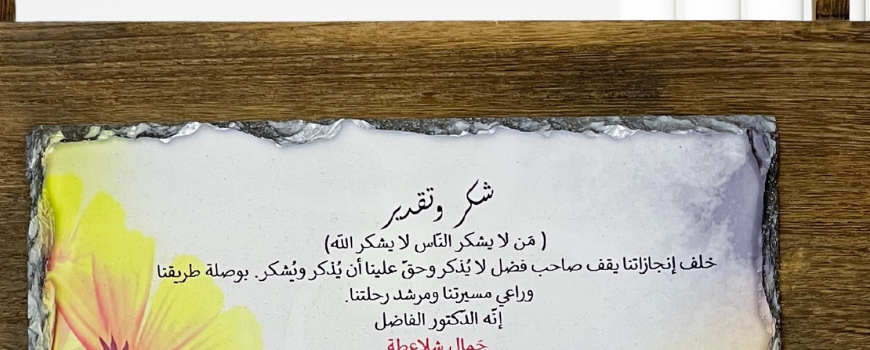 شكر وتقدير
( مَن لا يشكر النّاس لا يشكر اللّه)
خلف إنجازاتنا يقف صاحب فضل لا يُذكر وحقّ علينا أن يُذكر ويُشكر. بوصلة طريقنا
وراعي مسيرتنا ومرشد رحلتنا.
إنّه الدّكتور الفاضل
جَمال شلاعطة